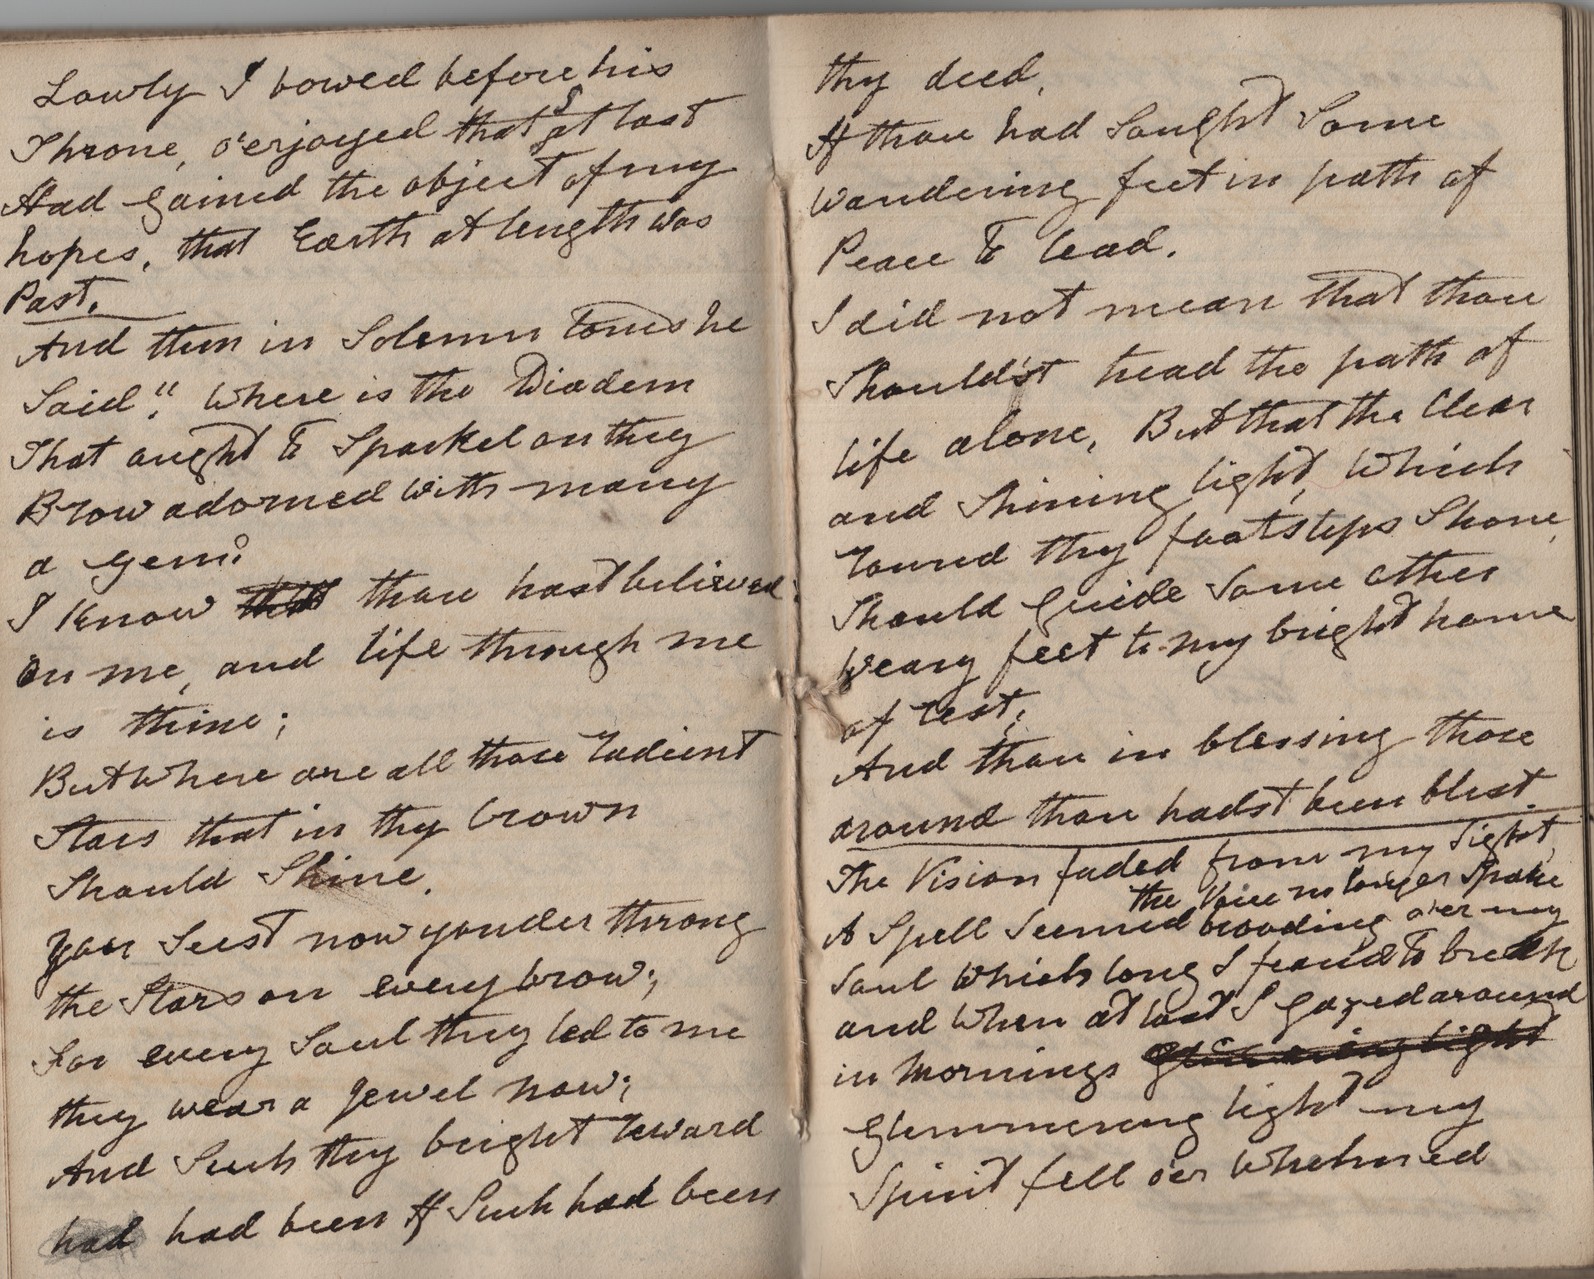 Lowly I bowed before his
Throne, o'erjoyed that I at last
Had gained the object of my
hopes, that Earth at length was
Past.
And then in Solemn tones he
Said", "Where is the Diadem
That aught to Sparkel on thy
Brow adorned with many
a gem?
I know that thou hast believed
on me, and life through me
is thine;
But where are all those radient
Stars that in thy crown
Should Shine.
You Seest now yonder throng
the Stars on every brow;
For every Soul they led to me
they wear a Jewel now;
And Such thy bright reward
had had been If Such had been
thy deed,
If thou had Saught Some
wandering feet in path of
Peace to lead.
I did not mean that thou
Should'st tread the path of
life alone, But that the Clear
and Shining light, Which
round thy footsteps Shone,
Should guide Some other
weary feet to my bright home
of rest;
And thou in blessing those
around thou hadst been blest.
The Vision faded from my Sight,
the Voice no longer Spake
A Spell Seemed brooding o'er my
Soul Which long I feared to break
and When at last I gazed around
in Mornings glimmering light
glimmereng light my
Spirit fell o'er Whelmed